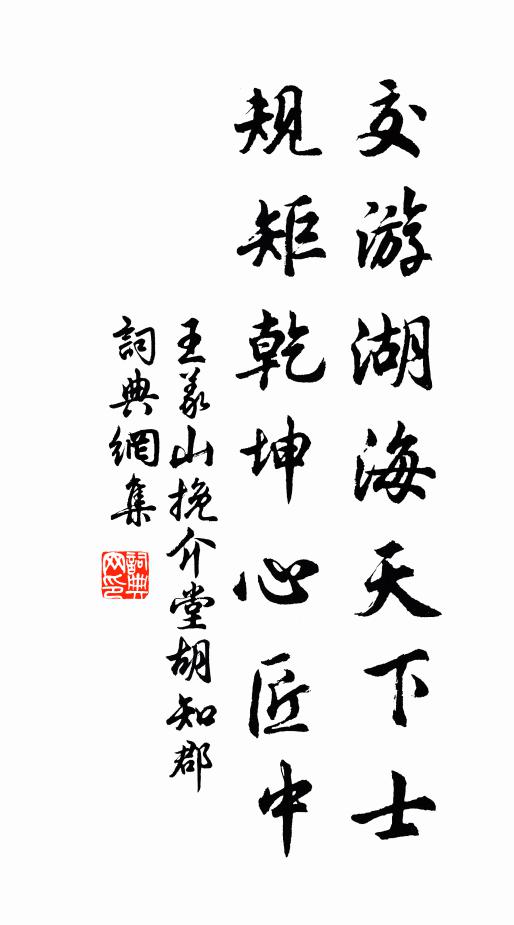 交游湖海天下士
規矩乾坤心匠中
王義山挽介堂胡知郡
詞典網集
詞典網印